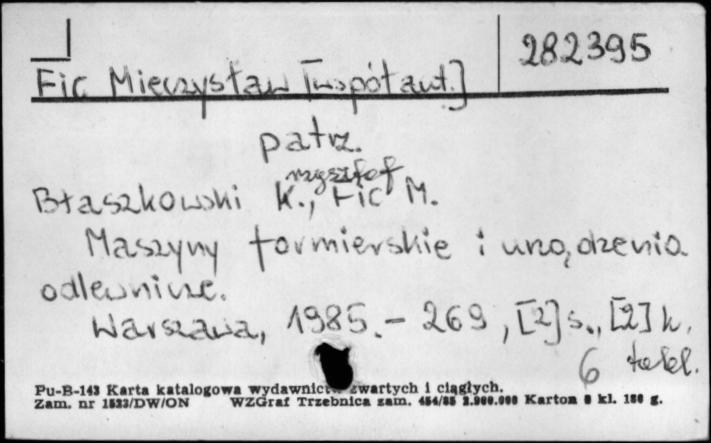 282395
Fic Mieczysław [współaut.]
patrz.
rzysztof
Błaszkowski K., Fic M.
Maszyny formierskie i urządzenia
odlewnicze.
Warszawa, 1985. – 269, [2] s., [2] k.
6 tabl.
Pu-B-143 Karta katalogowa wydawnictw zwartych i ciągłych.
Zam. nr 1523/DW/ON WZGraf Trzebnica zam. 454/85 2.900.000 Karton kl. 180 g.